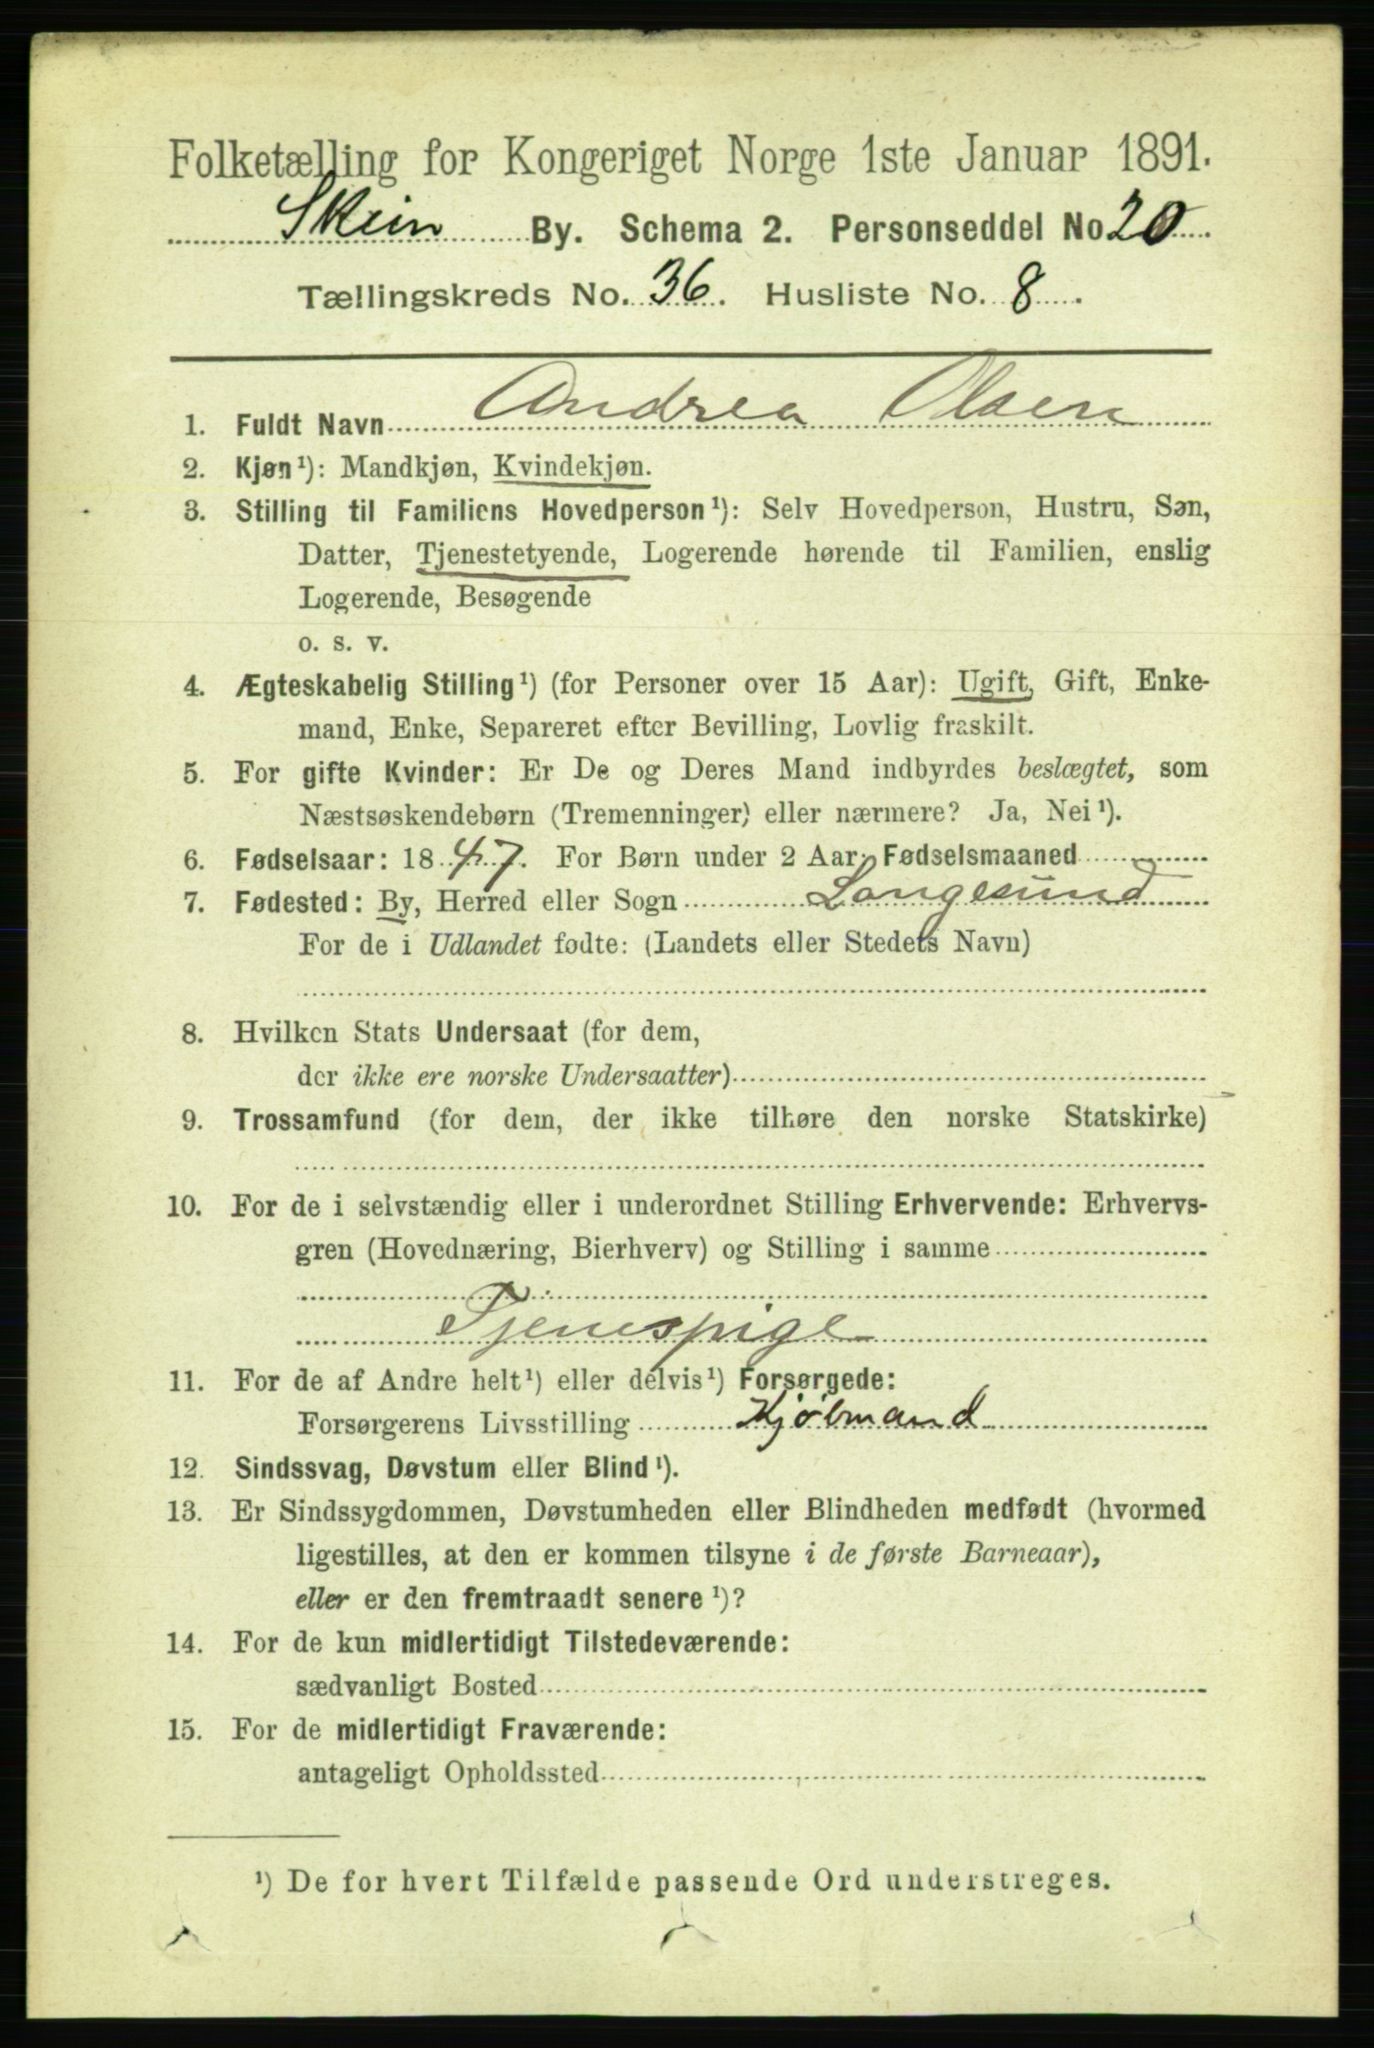 Folketælling for Kongeriget Norge 1ste Januar 1891.
Skien By. Schema 2. Personseddel No 20
Tællingskreds No. 36. Husliste No. 8.
1. Fuldt Navn Andrea Olsen
2. Kjøn¹): Mandkjøn, Kvindekjøn.
3. Stilling til Familiens Hovedperson¹): Selv Hovedperson, Hustru, Søn,
Datter, Tjenestetyende, Logerende hørende til Familien, enslig
Logerende, Besøgende
o. s. v.
4. Ægteskabelig Stilling¹) (for Personer over 15 Aar): Ugift, Gift, Enke-
mand, Enke, Separeret efter Bevilling, Lovlig fraskilt.
5. For gifte Kvinder: Er De og Deres Mand indbyrdes beslægtet, som
Næstsøskendebørn (Tremenninger) eller nærmere? Ja, Nei¹).
6. Fødselsaar: 1847. For Børn under 2 Aar: Fødselsmaaned
7. Fødested: By, Herred eller Sogn Langesund
For de i Udlandet fødte: (Landets eller Stedets Navn)
8. Hvilken Stats Undersaat (for dem,
der ikke ere norske Undersaatter)
9. Trossamfund (for dem, der ikke tilhøre den norske Statskirke)
10. For de i selvstændig eller i underordnet Stilling Erhvervende: Erhvervs-
gren (Hovednæring, Bierhverv) og Stilling i samme
Tjenespige
11. For de af Andre helt¹) eller delvis¹) Forsørgede:
Forsørgerens Livsstilling Kjøbmand
12. Sindssvag, Døvstum eller Blind¹).
13. Er Sindssygdommen, Døvstumheden eller Blindheden medfødt (hvormed
ligestilles, at den er kommen tilsyne i de første Barneaar),
eller er den fremtraadt senere¹)?
14. For de kun midlertidigt Tilstedeværende:
sædvanligt Bosted
15. For de midlertidigt Fraværende:
antageligt Opholdssted
¹) De for hvert Tilfælde passende Ord understreges.